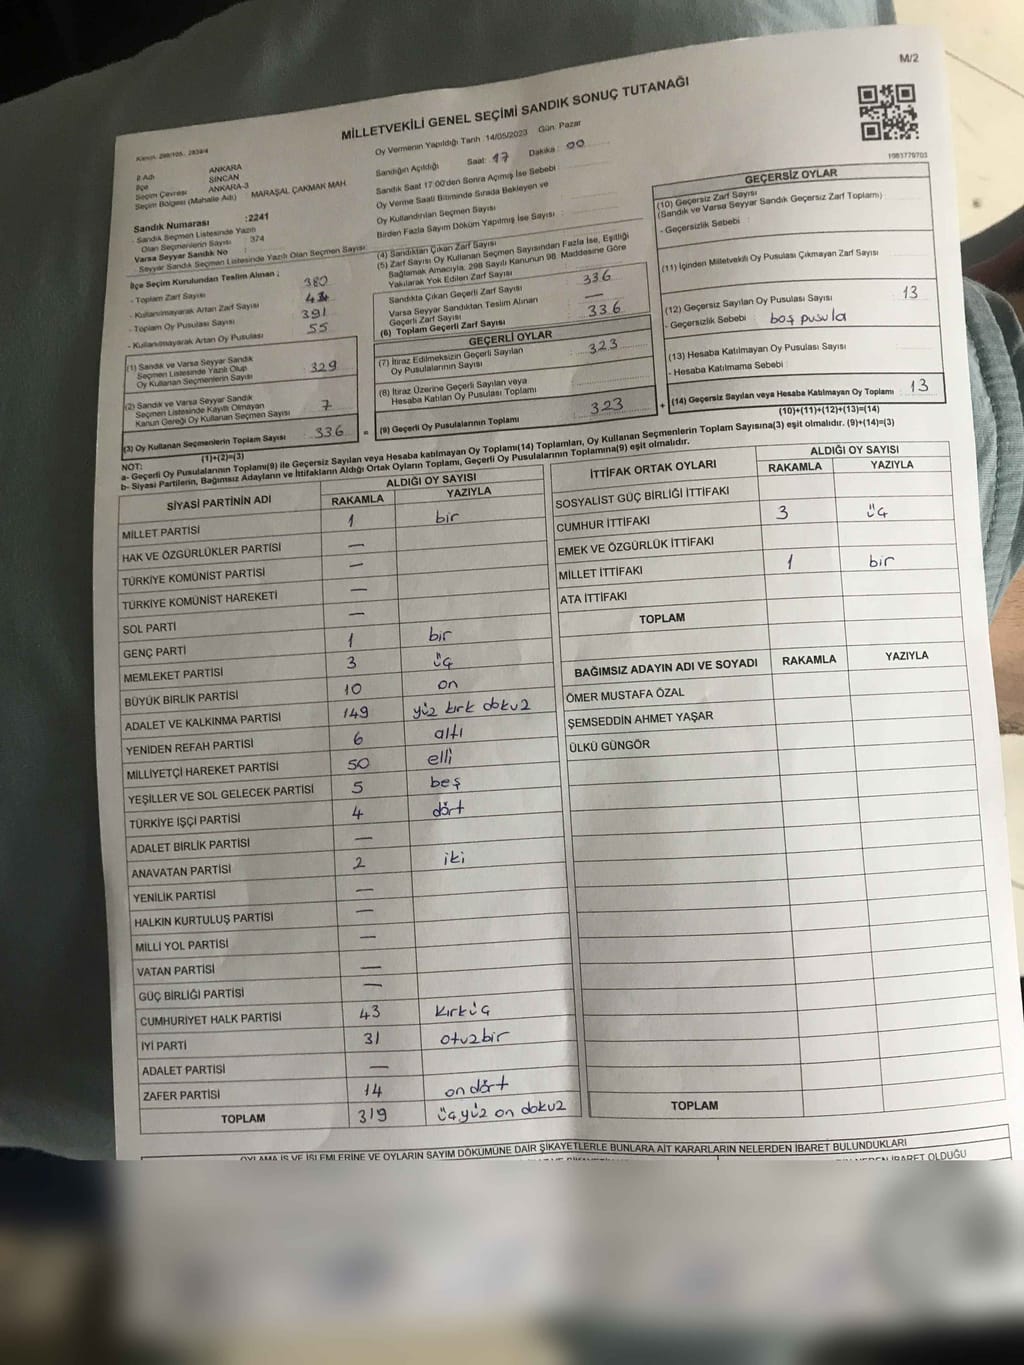 M/2
MİLLETVEKİLİ GENEL SEÇİMİ SANDIK SONUÇ TUTANAĞI
Kanun: 298/105, 2839/4
1983779703
İl Adı ANKARA
İlçe SİNCAN
Seçim Çevresi ANKARA-3
Seçim Bölgesi (Mahalle Adı) : MARAŞAL ÇAKMAK MAH.
Sandık Numarası :2241
- Sandık Seçmen Listesinde Yazılı
Olan Seçmenlerin Sayısı : 374
Varsa Seyyar Sandık No :
- Seyyar Sandık Seçmen Listesinde Yazılı Olan Seçmen Sayısı :
İlçe Seçim Kurulundan Teslim Alınan ;
- Toplam Zarf Sayısı 380
- Kullanılmayarak Artan Zarf Sayısı
- Toplam Oy Pusulası Sayısı 391
- Kullanılmayarak Artan Oy Pusulası 55
(1) Sandık ve Varsa Seyyar Sandık
Seçmen Listesinde Yazılı Olup
Oy Kullanan Seçmenlerin Sayısı 329
(2) Sandık ve Varsa Seyyar Sandık
Seçmen Listesinde Kayıtlı Olmayan
Kanun Gereği Oy Kullanan Seçmen Sayısı 7
(3) Oy Kullanan Seçmenlerin Toplam Sayısı 336
(1)+(2)=(3)
Oy Vermenin Yapıldığı Tarih 14/05/2023 Gün: Pazar
Sandığın Açıldığı Saat: 17 Dakika : 00
Sandık Saat 17:00'den Sonra Açılmış İse Sebebi :
Oy Verme Saati Bitiminde Sırada Bekleyen ve
Oy Kullandırılan Seçmen Sayısı :
Birden Fazla Sayım Döküm Yapılmış İse Sayısı :
(4) Sandıktan Çıkan Zarf Sayısı
(5) Zarf Sayısı Oy Kullanan Seçmen Sayısından Fazla İse, Eşitliği
Bağlamak Amacıyla, 298 Sayılı Kanunun 98. Maddesine Göre
Yakılarak Yok Edilen Zarf Sayısı
Sandıkta Çıkan Geçerli Zarf Sayısı 336
Varsa Seyyar Sandıktan Teslim Alınan
Geçerli Zarf Sayısı —
(6) Toplam Geçerli Zarf Sayısı 336
GEÇERLİ OYLAR
(7) İtiraz Edilmeksizin Geçerli Sayılan
Oy Pusulalarının Sayısı : 323
(8) İtiraz Üzerine Geçerli Sayılan veya
Hesaba Katılan Oy Pusulası Toplamı
= (9) Geçerli Oy Pusulalarının Toplamı 323
GEÇERSİZ OYLAR
(10) Geçersiz Zarf Sayısı
(Sandık ve Varsa Seyyar Sandık Geçersiz Zarf Toplamı)
- Geçersizlik Sebebi :
(11) İçinden Milletvekili Oy Pusulası Çıkmayan Zarf Sayısı
(12) Geçersiz Sayılan Oy Pusulası Sayısı 13
- Geçersizlik Sebebi : boş pusula
(13) Hesaba Katılmayan Oy Pusulası Sayısı
- Hesaba Katılmama Sebebi :
+ (14) Geçersiz Sayılan veya Hesaba Katılmayan Oy Toplamı : 13
(10)+(11)+(12)+(13)=(14)
NOT:
a- Geçerli Oy Pusulalarının Toplamı(9) ile Geçersiz Sayılan veya Hesaba katılmayan Oy Toplamı(14) Toplamları, Oy Kullanan Seçmenlerin Toplam Sayısına(3) eşit olmalıdır. (9)+(14)=(3)
b- Siyasi Partilerin, Bağımsız Adayların ve İttifakların Aldığı Ortak Oyların Toplamı, Geçerli Oy Pusulalarının Toplamına(9) eşit olmalıdır.
SİYASİ PARTİNİN ADI ALDIĞI OY SAYISI
RAKAMLA YAZIYLA
MİLLET PARTİSİ 1 bir
HAK VE ÖZGÜRLÜKLER PARTİSİ —
TÜRKİYE KOMÜNİST PARTİSİ —
TÜRKİYE KOMÜNİST HAREKETİ —
SOL PARTİ —
GENÇ PARTİ 1 bir
MEMLEKET PARTİSİ 3 üç
BÜYÜK BİRLİK PARTİSİ 10 on
ADALET VE KALKINMA PARTİSİ 149 yüz kırk dokuz
YENİDEN REFAH PARTİSİ 6 altı
MİLLİYETÇİ HAREKET PARTİSİ 50 elli
YEŞİLLER VE SOL GELECEK PARTİSİ 5 beş
TÜRKİYE İŞÇİ PARTİSİ 4 dört
ADALET BİRLİK PARTİSİ —
ANAVATAN PARTİSİ 2 iki
YENİLİK PARTİSİ —
HALKIN KURTULUŞ PARTİSİ —
MİLLİ YOL PARTİSİ —
VATAN PARTİSİ —
GÜÇ BİRLİĞİ PARTİSİ —
CUMHURİYET HALK PARTİSİ 43 kırküç
İYİ PARTİ 31 otuzbir
ADALET PARTİSİ —
ZAFER PARTİSİ 14 on dört
TOPLAM 319 üçyüz on dokuz
İTTİFAK ORTAK OYLARI ALDIĞI OY SAYISI
RAKAMLA YAZIYLA
SOSYALİST GÜÇ BİRLİĞİ İTTİFAKI
CUMHUR İTTİFAKI 3 üç
EMEK VE ÖZGÜRLÜK İTTİFAKI
MİLLET İTTİFAKI 1 bir
ATA İTTİFAKI
TOPLAM
BAĞIMSIZ ADAYIN ADI VE SOYADI RAKAMLA YAZIYLA
ÖMER MUSTAFA ÖZAL
ŞEMSEDDİN AHMET YAŞAR
ÜLKÜ GÜNGÖR
TOPLAM
OYLAMA İŞ VE İŞLEMLERİNE VE OYLARIN SAYIM DÖKÜMÜNE DAİR ŞİKAYETLERLE BUNLARA AİT KARARLARIN NELERDEN İBARET BULUNDUKLARI